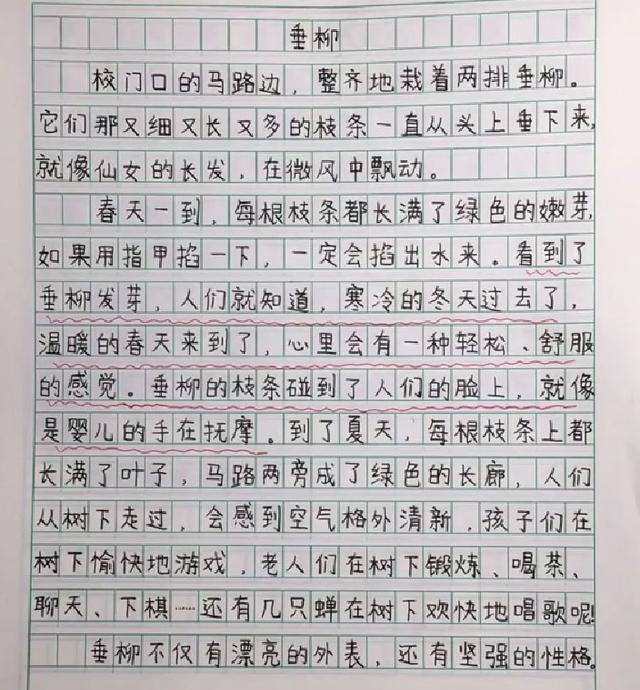 垂柳
校门口的马路边，整齐地栽着两排垂柳。
它们那又细又长又多的枝条一直从头上垂下来，
就像仙女的长发，在微风中飘动。
春天一到，每根枝条都长满了绿色的嫩芽，
如果用指甲掐一下，一定会掐出水来。看到了
垂柳发芽，人们就知道，寒冷的冬天过去了，
温暖的春天来到了，心里会有一种轻松、舒服
的感觉。垂柳的枝条碰到了人们的脸上，就像
是婴儿的手在抚摩。到了夏天，每根枝条上都
长满了叶子，马路两旁成了绿色的长廊，人们
从树下走过，会感到空气格外清新，孩子们在
树下愉快地游戏，老人们在树下锻炼、喝茶、
聊天、下棋……还有几只蝉在树下欢快地唱歌呢！
垂柳不仅有漂亮的外表，还有坚强的性格。